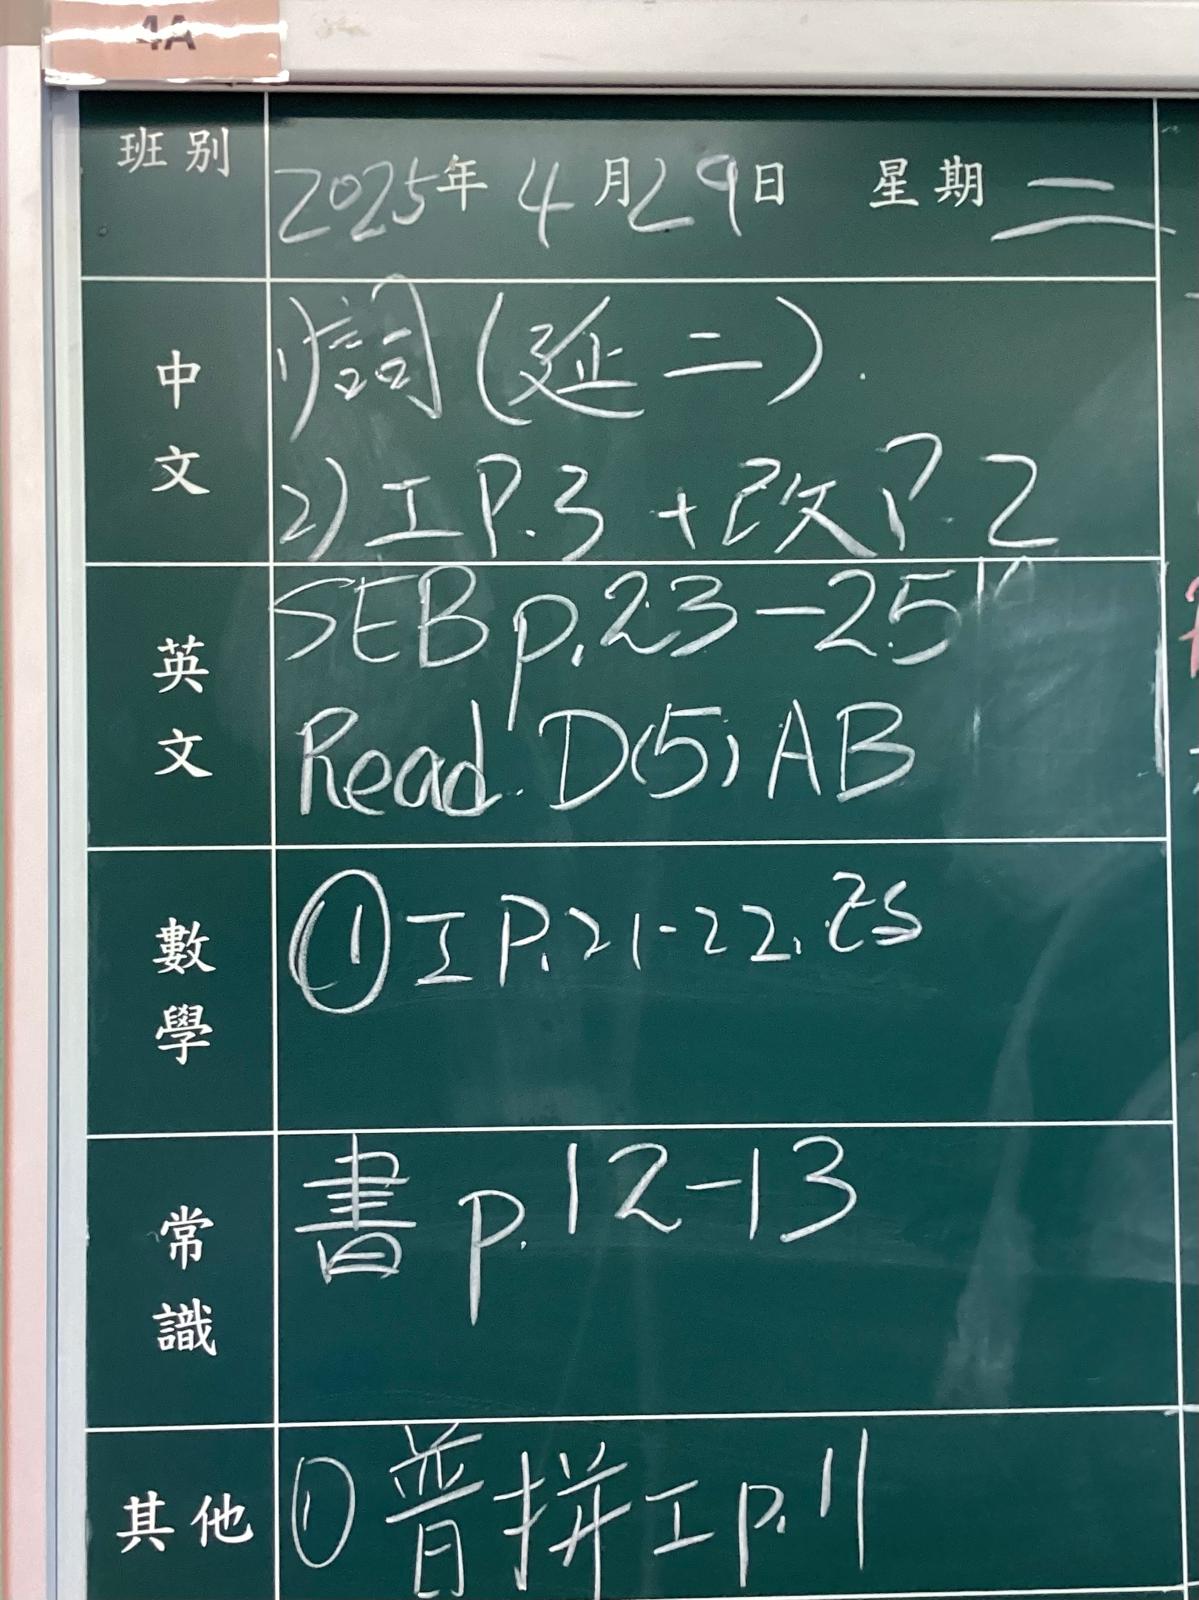 4A
班別
2025年 4月29日 星期二
中文
1)詞(延二).
2)工P.3 +改P.2
英文
SEB p.23-25
Read D(5) AB
數學
① 工 P.21-22.
常識
書 p.12-13
其他
① 普拼工p.11